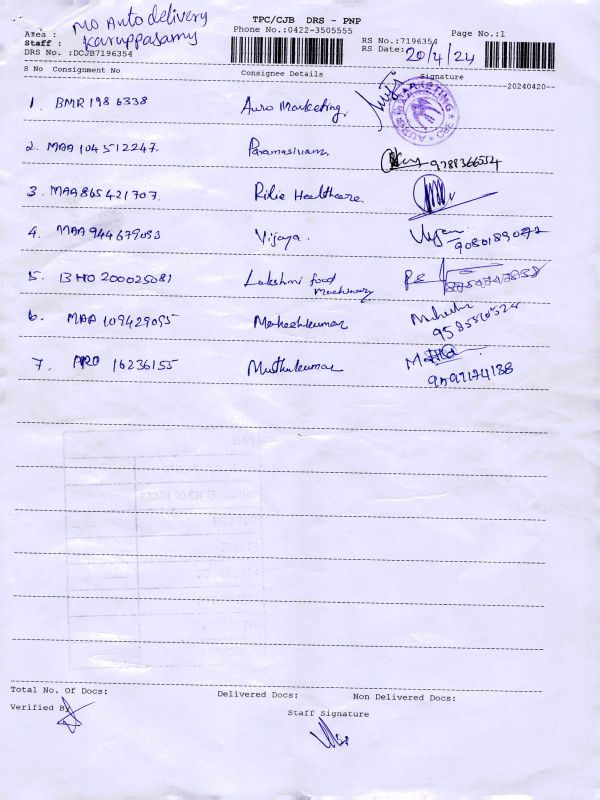 TPC/CJB DRS - PNP
Area : MO Auto delivery
Phone No.:0422-3505555
RS No.:7196354
Page No.:1
Staff : Karuppasamy
RS Date: 20/4/24
DRS No. :DCJB7196354
S No Consignment No Consignee Details Signature
--20240420--
1. BMR 198 6338 Auro Marketing.
2. MAA 104512247. Paramasivam. 9788366554
3. MAA865421707. Rikie Healthcare.
4. MAA 944679093 Vijaya.
5. BHO 200025081 Lakshmi food
Machinary
6. MAA 109429095 Maheshkumar
7. 16236155 Muthukumar
Total No. Of Docs: Delivered Docs: Non Delivered Docs:
Verified By
Staff Signature